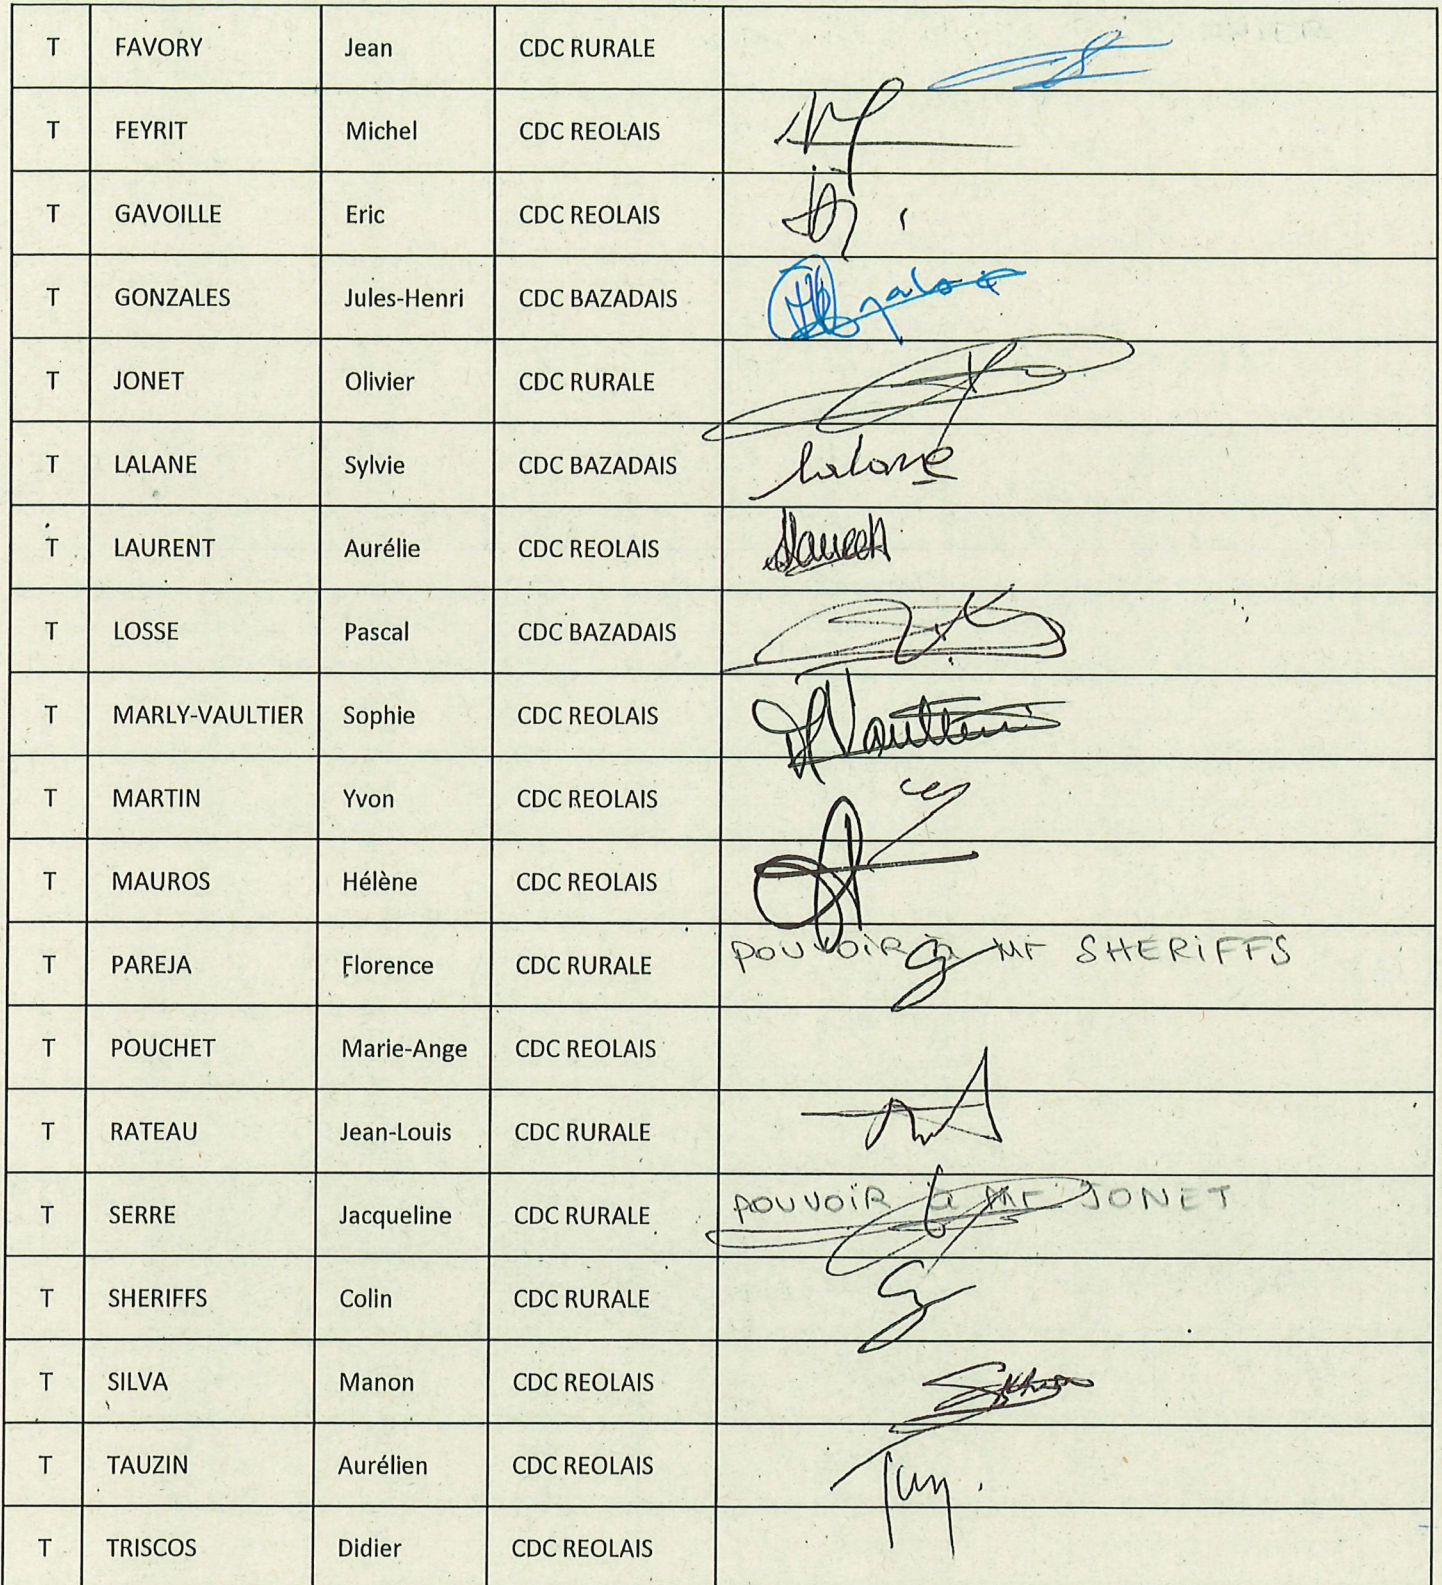 T FAVORY Jean CDC RURALE
T FEYRIT Michel CDC REOLAIS
T GAVOILLE Eric CDC REOLAIS
T GONZALES Jules-Henri CDC BAZADAIS
T JONET Olivier CDC RURALE
T LALANE Sylvie CDC BAZADAIS Lalane
T LAURENT Aurélie CDC REOLAIS
T LOSSE Pascal CDC BAZADAIS
T MARLY-VAULTIER Sophie CDC REOLAIS
T MARTIN Yvon CDC REOLAIS
T MAUROS Hélène CDC REOLAIS
T PAREJA Florence CDC RURALE POUVOIR à MR SHERIFFS
T POUCHET Marie-Ange CDC REOLAIS
T RATEAU Jean-Louis CDC RURALE
T SERRE Jacqueline CDC RURALE POUVOIR à MR JONET
T SHERIFFS Colin CDC RURALE
T SILVA Manon CDC REOLAIS
T TAUZIN Aurélien CDC REOLAIS
T TRISCOS Didier CDC REOLAIS